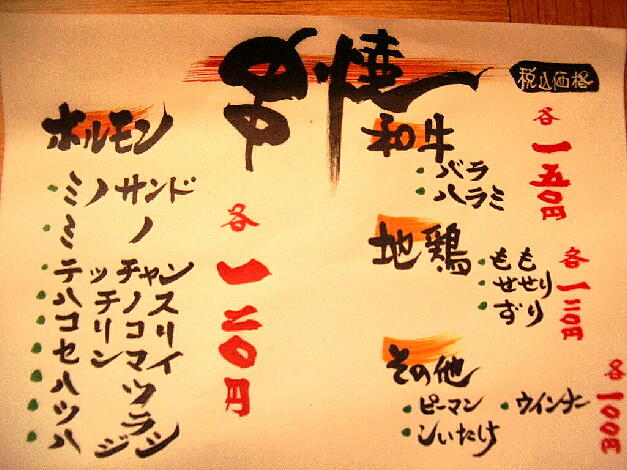 串焼
税込価格
ホルモン
ミノサンド
ミノ
テッチャン
ハチノス
コリコリ
センマイ
ハツ
ツラ
ハジシ
各一二〇円
和牛
バラ
ハラミ
各一五〇円
地鶏
もも
せせり
ずり
各一二〇円
その他
ピーマン ウインナー
しいたけ
各100円